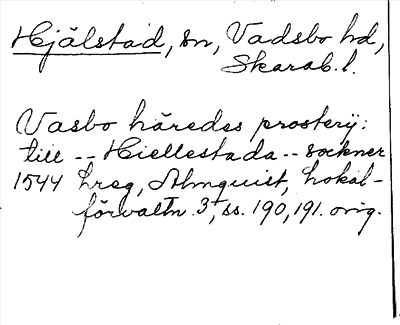 Hjälstad, sn, Vadsbo hd,
Skarab. l.
Vasbo häredes prosterij:
till -- Hiellestada -- sockner
1544 Lreg, Almquist, Lokal-
förvaltn. 3, ss. 190, 191. orig.